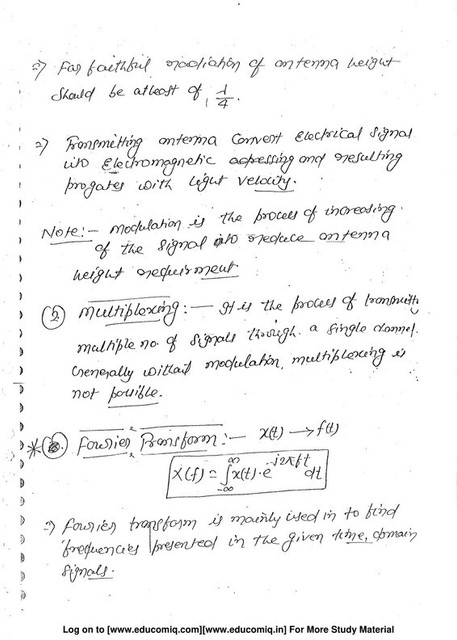 ⇒) For faithful radiation of antenna height
should be atleast of, λ/4.
⇒) Transmitting antenna convert Electrical signal
into Electromagnetic and resulting
progates with light velocity.
Note:- Modulation is the process of increasing
of the signal to reduce antenna
height requirment
(2) Multiplexing:— It is the process of transmitting
multiple no. of signals through a single channel.
Generally without modulation, multiplexing is
not possible.
* Fourier Transform:- x(t) → f(t)
X(f) = ∫_{-∞}^{∞} x(t)·e^{-j2πft} dt
⇒) Fourier transform is mainly used in to find
frequencies presented in the given time, domain
signals.
Log on to [www.educomiq.com][www.educomiq.in] For More Study Material